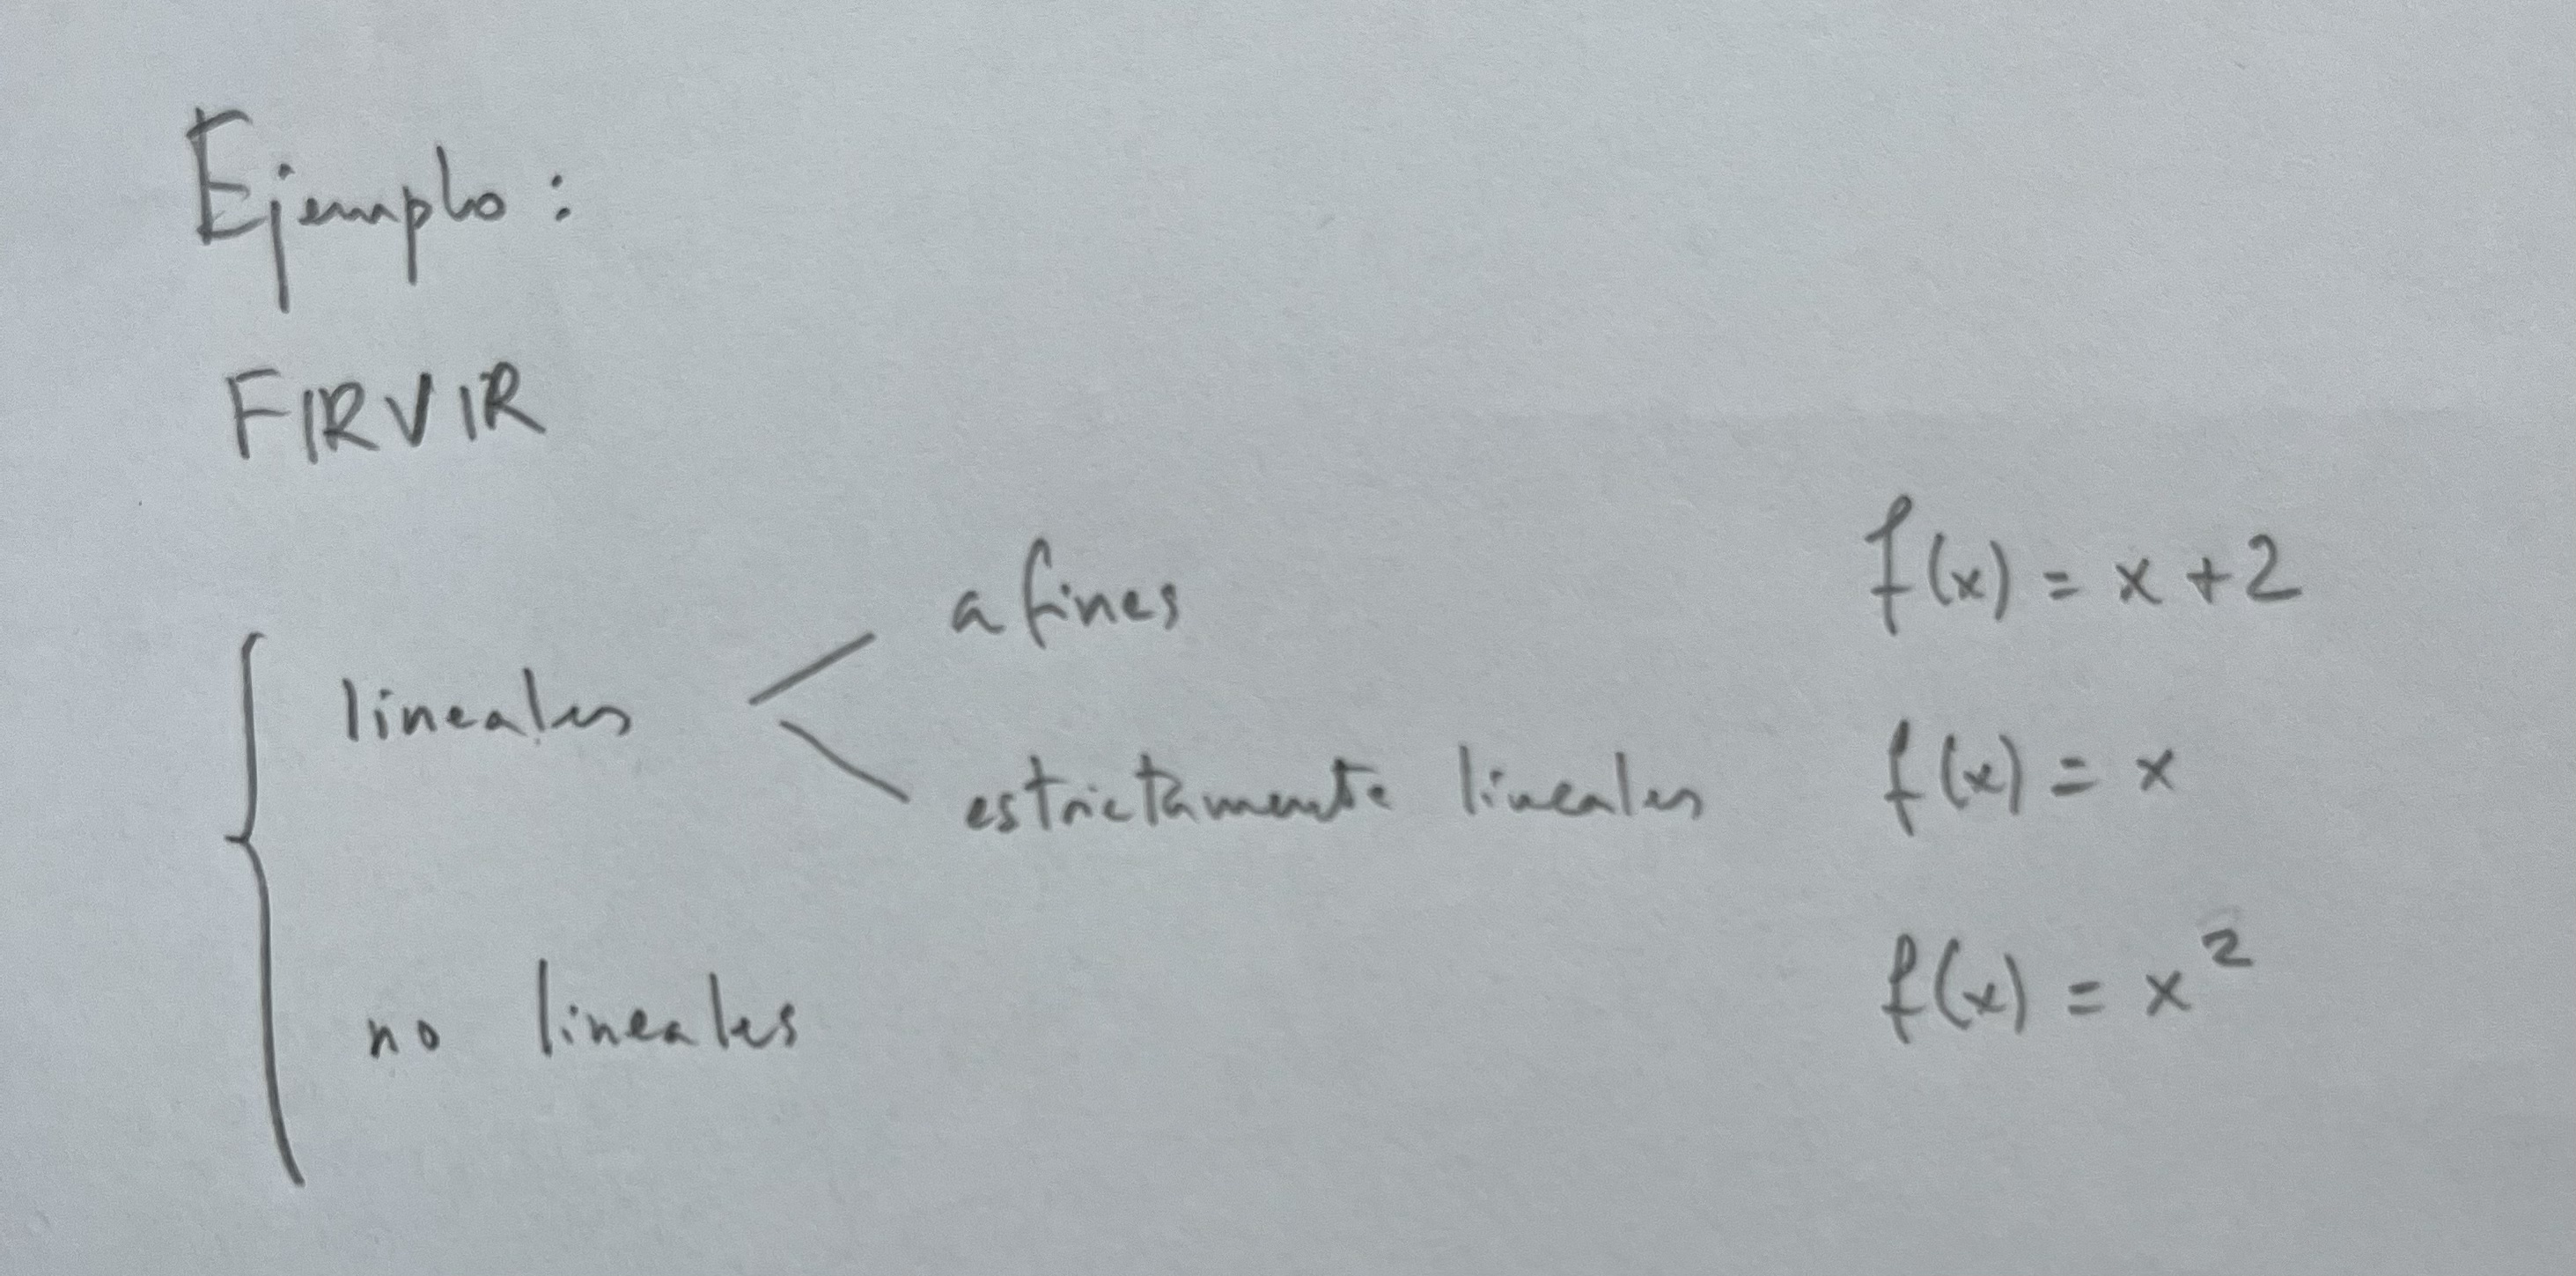 Ejemplo:
FIRVIR
afines f(x) = x + 2
lineales
estrictamente lineales f(x) = x
no lineales f(x) = x²